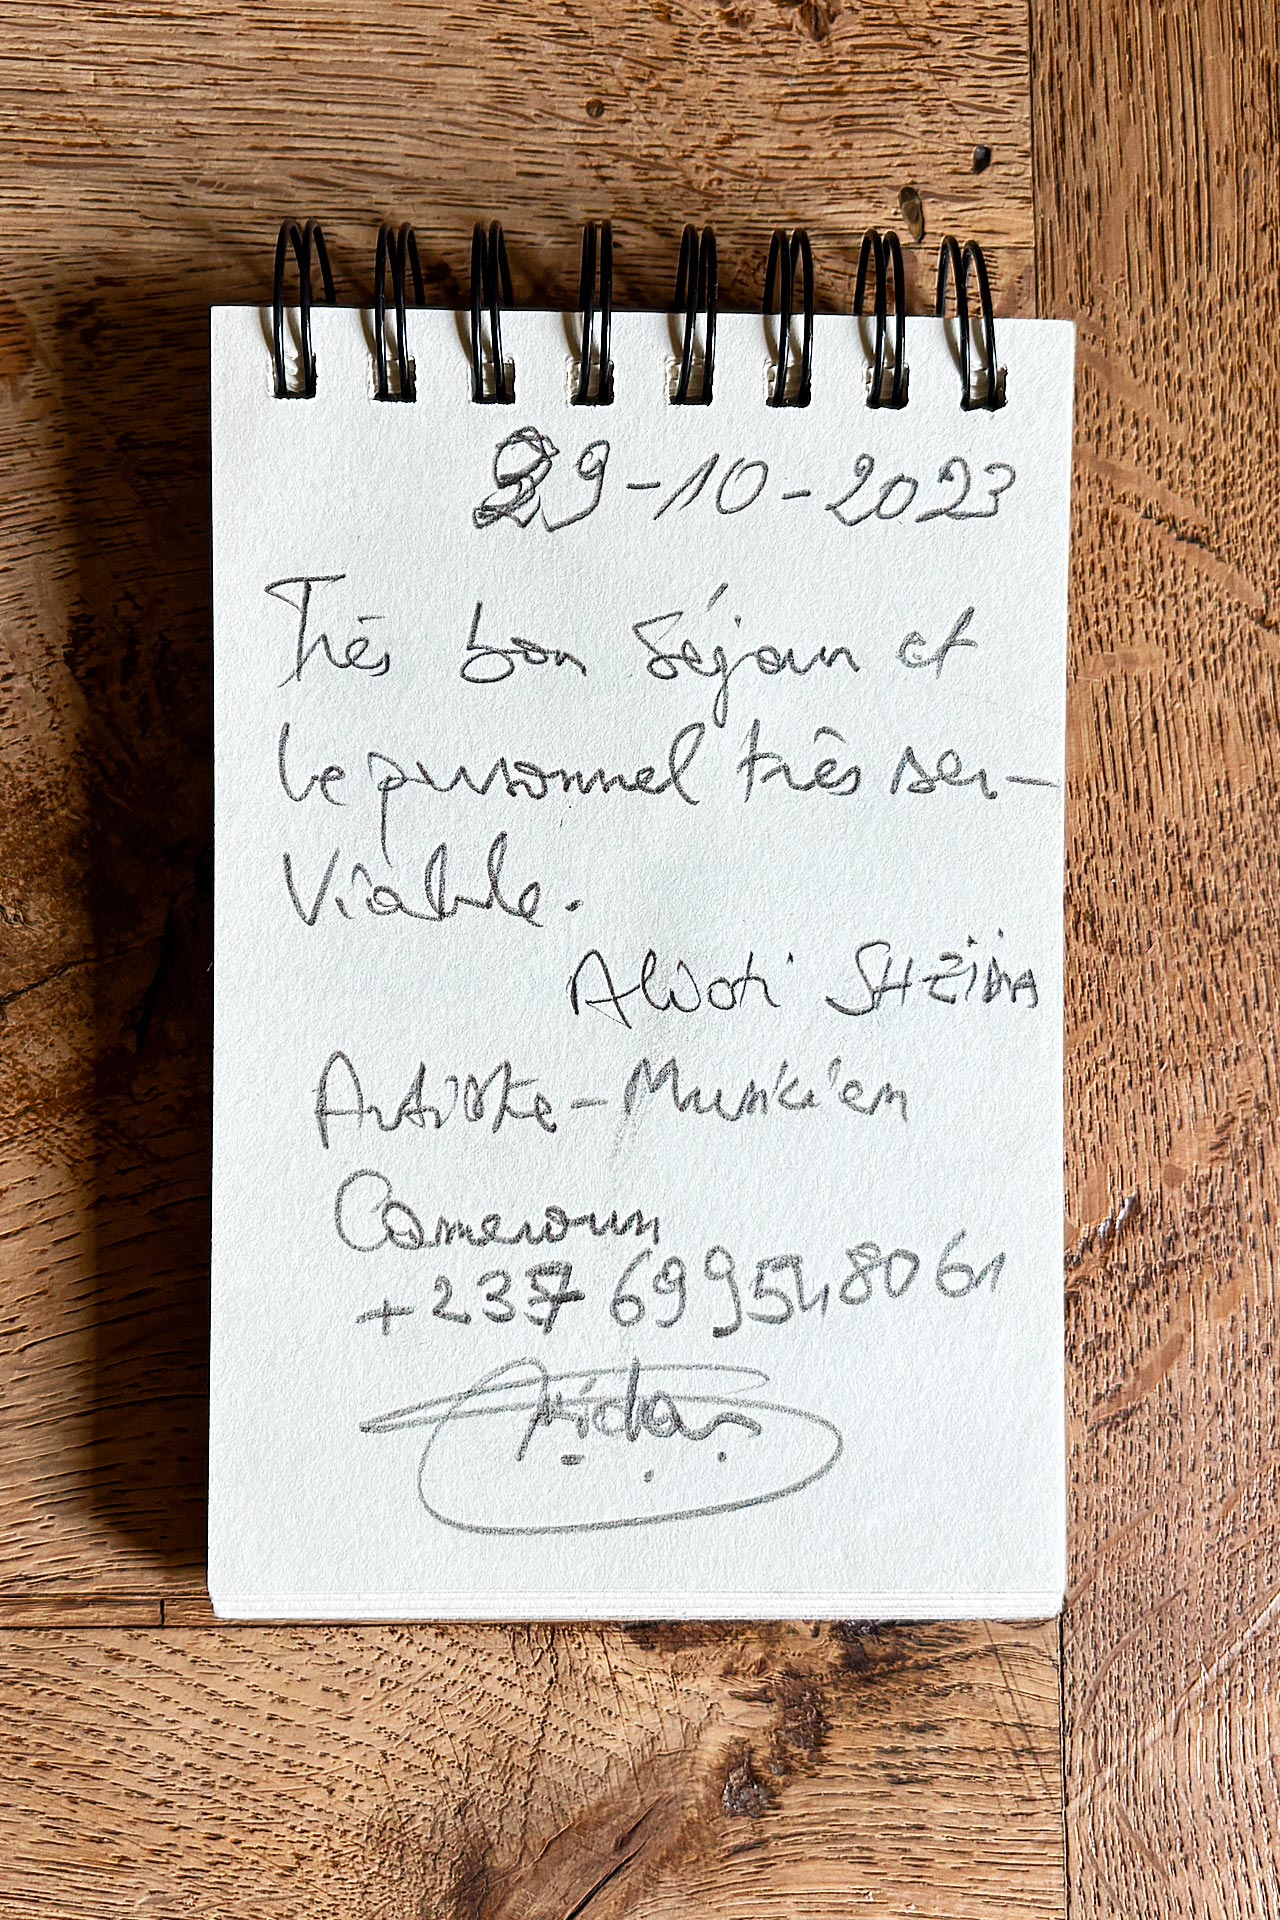 29-10-2023
Très bon séjour et
le personnel très ser-
viable.
Artiste-Musicien
Cameroun
+237 699548061